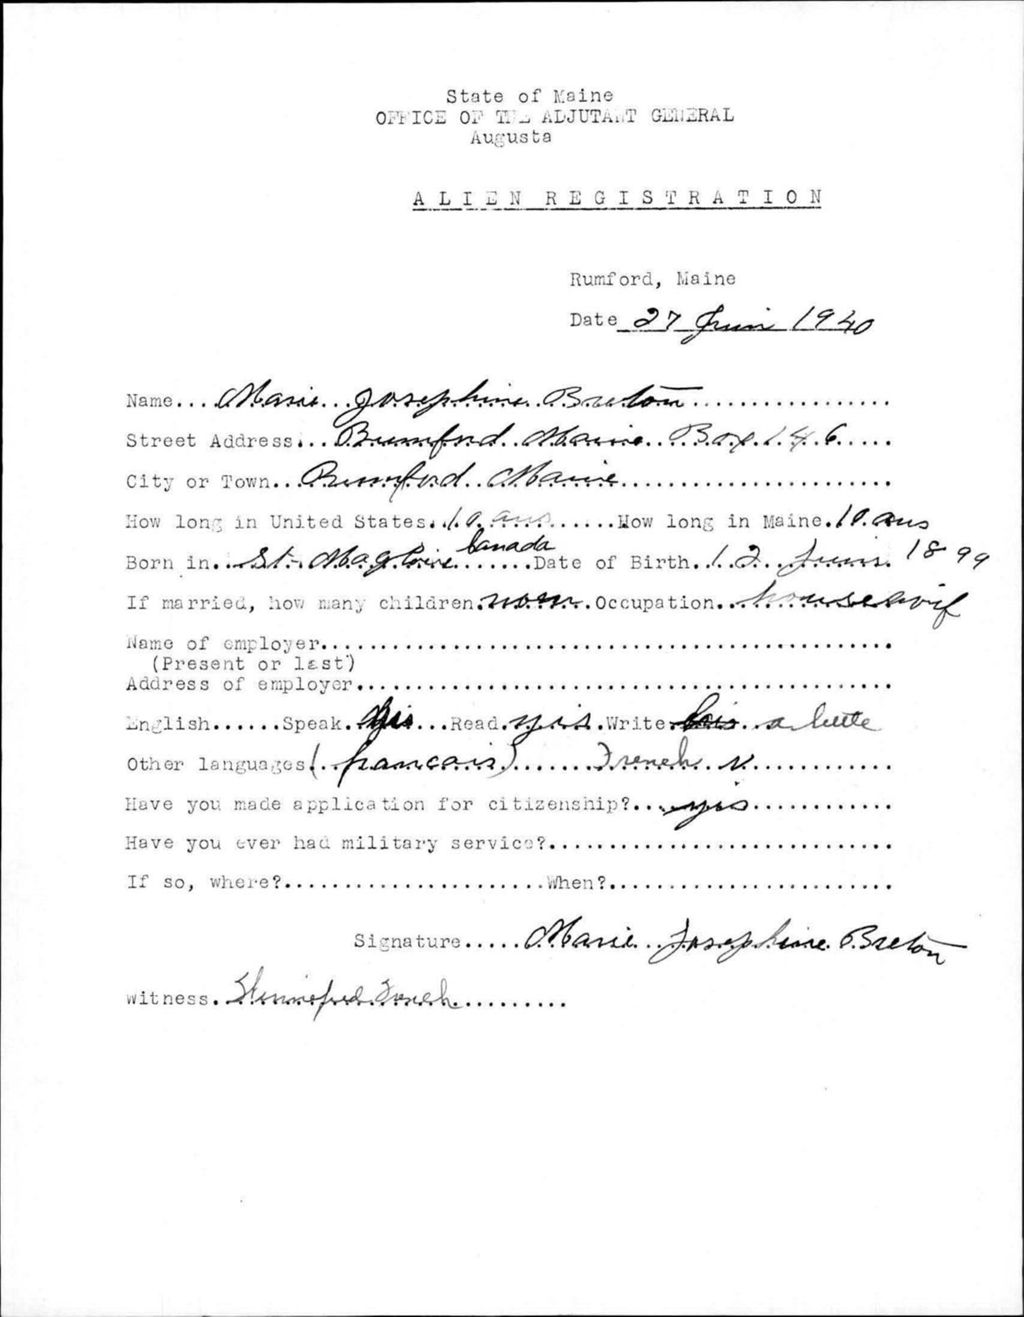 State of Maine
OFFICE OF THE ADJUTANT GENERAL
Augusta
ALIEN REGISTRATION
Rumford, Maine
Date 27 Juin 1940
Name... Marie Josephine Breton
Street Address... Rumford Maine Box 146
City or Town.. Rumford Maine
How long in United States. 10 ans ......How long in Maine. 10 ans
Born in.. St. Magloire Canada .......Date of Birth.. 12 Juin 1899
If married, how many children. non .Occupation.. housewif
Name of employer
(Present or last)
Address of employer
English......Speak. yis ...Read. yis .Write a little
Other languages (francais) French
Have you made application for citizenship?... yis
Have you ever had military service?
If so, where? When?
Signature..... Marie Josephine Breton
Witness.